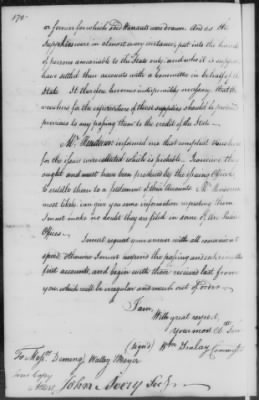 170
or former for which said Warrants were drawn. And as the
Supplies were in almost every instance put into the hands
of persons amenable to the State only, and who it is supposed
have settled their accounts with a Committee in behalf of the
State. It therefore becomes indispensibly necessary that the
vouchers for the expenditure of these supplies should be produced
previous to any passing them to the credit of the State
Mr. Henderson informed me that compleat Vouchers
for the same were collected which is probable. I conceive they
ought and must have been produced by the Officers
to enable them to a settlement of their Accounts. Mr.
most likely can give you some information respecting them
I must make no doubt they are filed in some of the Public
Offices.
I must request your answer with all convenient
speed otherwise I must the passing and entering the
first accounts, and begin with those received last from
you which will be irregular and much out of order.
I am,
With great respect,
Your most Obt Ser
(Signed) Wm Finlay Commissr
To Messrs. Deming Walley & Meyer
true Copy
Attest John Avery Secy